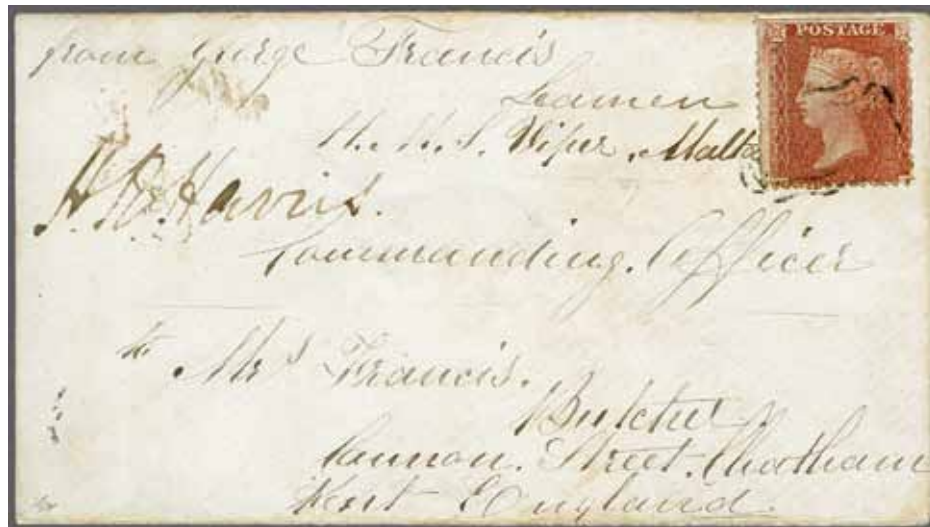 POSTAGE
from George Francis
Seamen
H.M.S. Viper. Malta
H. B. Harris.
Commanding. Officer
to Mrs Francis.
Butcher
Cannon. Street. Chatham
Kent England